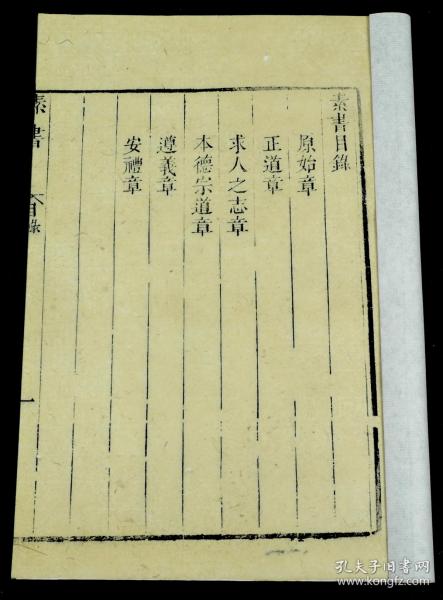 素書目錄
原始章
正道章
求人之志章
本德宗道章
遵義章
安禮章
素書 目錄
一
孔夫子旧书网
www.kongfz.com